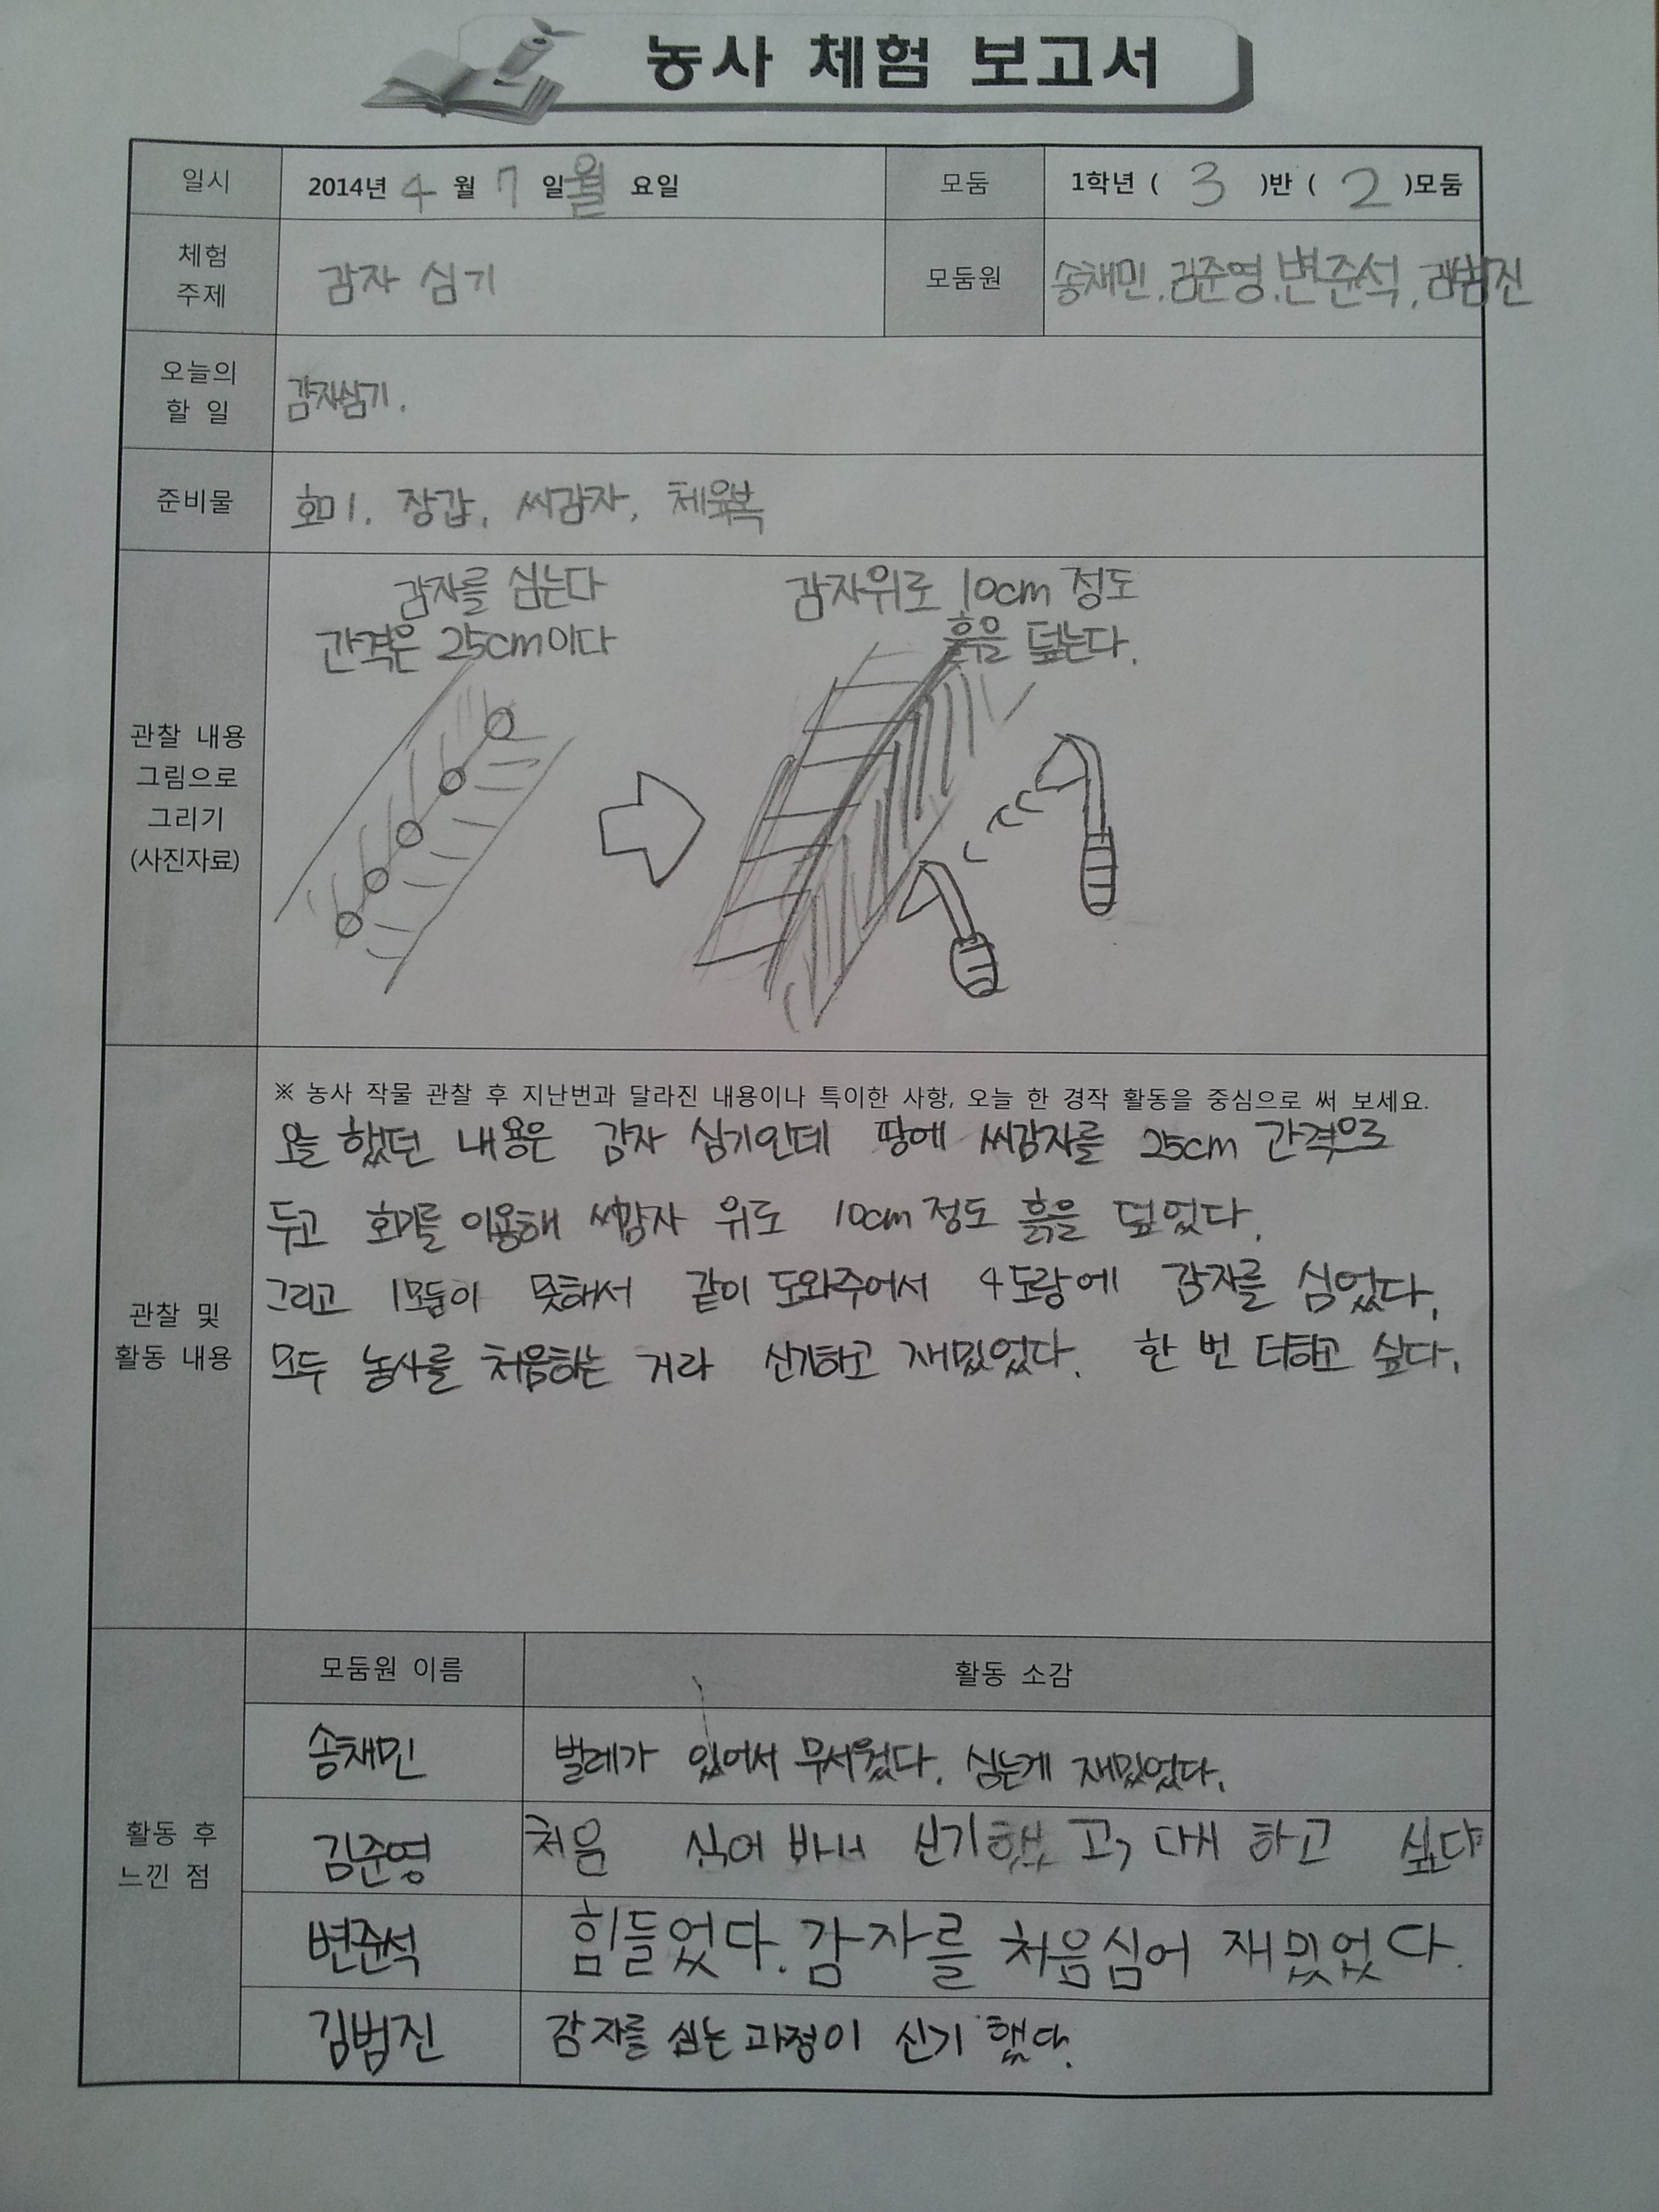 농사 체험 보고서
일시 2014년 4 월 7 일 월 요일 모둠 1학년 ( 3 )반 ( 2 )모둠
체험
주제
감자 심기
모둠원
송채민, 김준영, 변준석, 김범진
오늘의
할 일
감자심기.
준비물 호미, 장갑, 씨감자, 체육복
감자를 심는다
간격은 25cm이다
감자위로 10cm 정도
흙을 덮는다.
관찰 내용
그림으로
그리기
(사진자료)
※ 농사 작물 관찰 후 지난번과 달라진 내용이나 특이한 사항, 오늘 한 경작 활동을 중심으로 써 보세요.
오늘 했던 내용은 감자 심기인데 땅에 씨감자를 25cm 간격으로
두고 호미를 이용해 씨감자 위로 10cm 정도 흙을 덮었다.
그리고 1모둠이 못해서 같이 도와주어서 4도랑에 감자를 심었다.
모두 농사를 처음하는 거라 신기하고 재밌었다. 한 번 더하고 싶다.
관찰 및
활동 내용
모둠원 이름 활동 소감
송채민 벌레가 있어서 무서웠다. 심는게 재밌었다.
김준영 처음 심어 봐서 신기했고, 다시 하고 싶다
변준석 힘들었다. 감자를 처음심어 재밌었다.
김범진 감자를 심는 과정이 신기했다.
활동 후
느낀 점